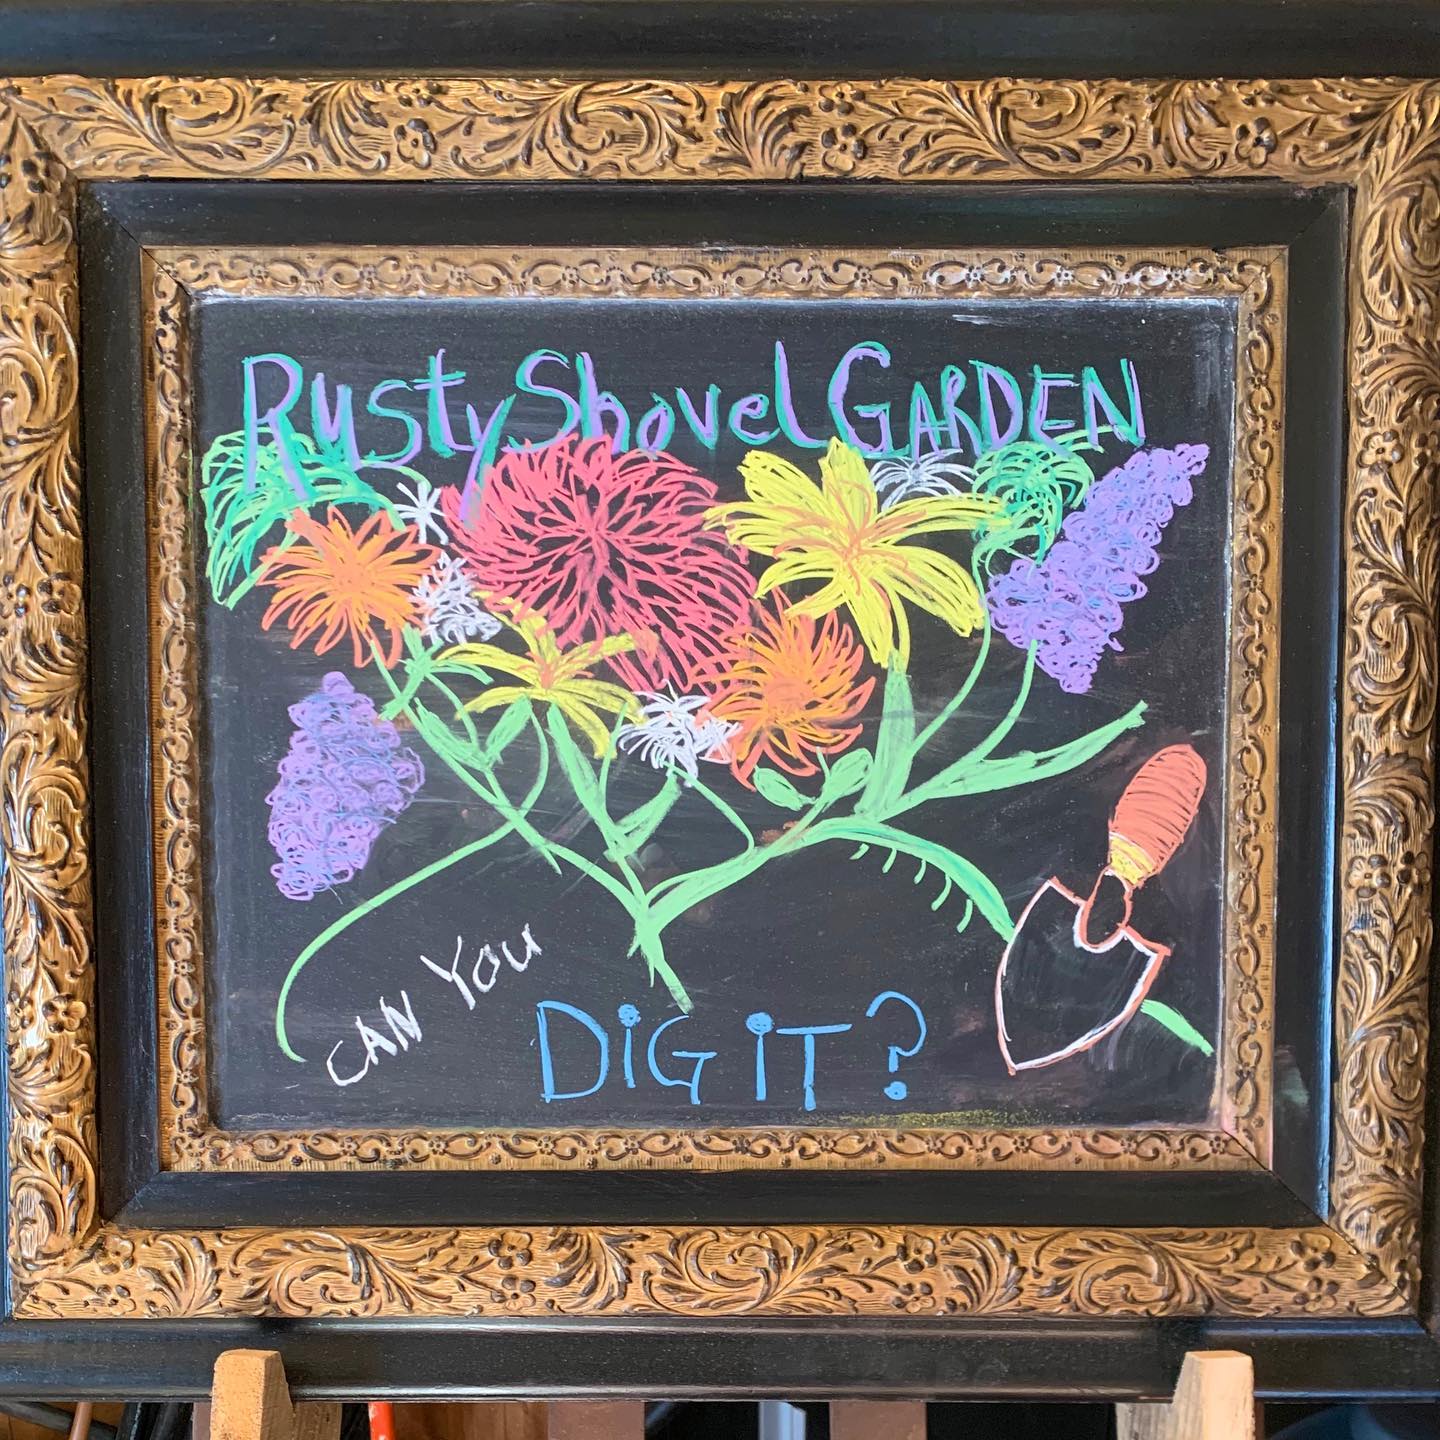 Rusty Shovel GARDEN
CAN You
DiG iT?